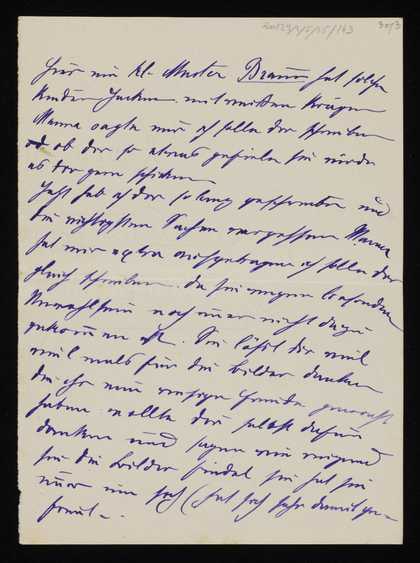 Hier ein kl. Muster Braun hat solche
Kinder Jacken mit weißen Kragen
Mama sagte mir ich solle dir schreiben
ob dir so etwas gefiele sie würde
es dir gern schicken
Jetzt hab ich dir so lang geschrieben und
die wichtigsten Sachen vergessen Mama
hat mir extra aufgetragen ich solle dir
gleich schreiben. da sie wegen besonderen
Unwohlsein noch immer nicht dazu
gekommen ist. Sie läßt dir viel
viel mals für die Bilder danken
die ihr eine riesige Freude gemacht
haben. wollte dir selbst dafür
danken und sagen wie
sie die Bilder findet sie hat sie
nur um sich (hat sich sehr damit ge-
freut.